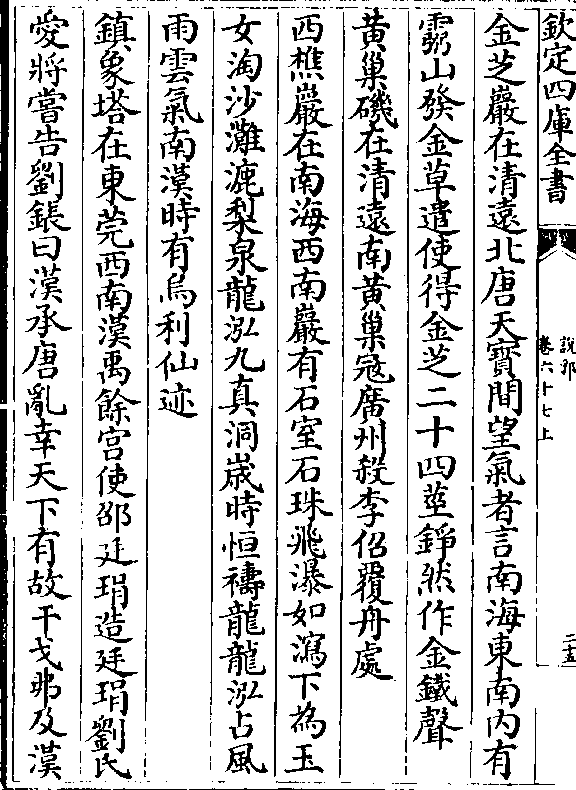 欽定四庫全書
說郛
卷六十七上
二十五
金芝巖在清遠北唐天寶間望氣者言南海東南内有
霛山發金草遣使得金芝二十四莖錚然作金鐵聲
黄巢磯在清遠南黄巢冦廣州殺李佋覆舟處
西樵巖在南海西南巖有石室石珠飛瀑如瀉下為玉
女淘沙灘漉梨泉龍泓九真洞嵗時恒禱龍龍泓占風
雨雲氣南漢時有烏利仙迹
鎮象塔在東莞西南漢禹餘宫使邵廷琄造廷琄劉氏
愛將嘗告劉鋹曰漢承唐亂幸天下有故干戈弗及漢